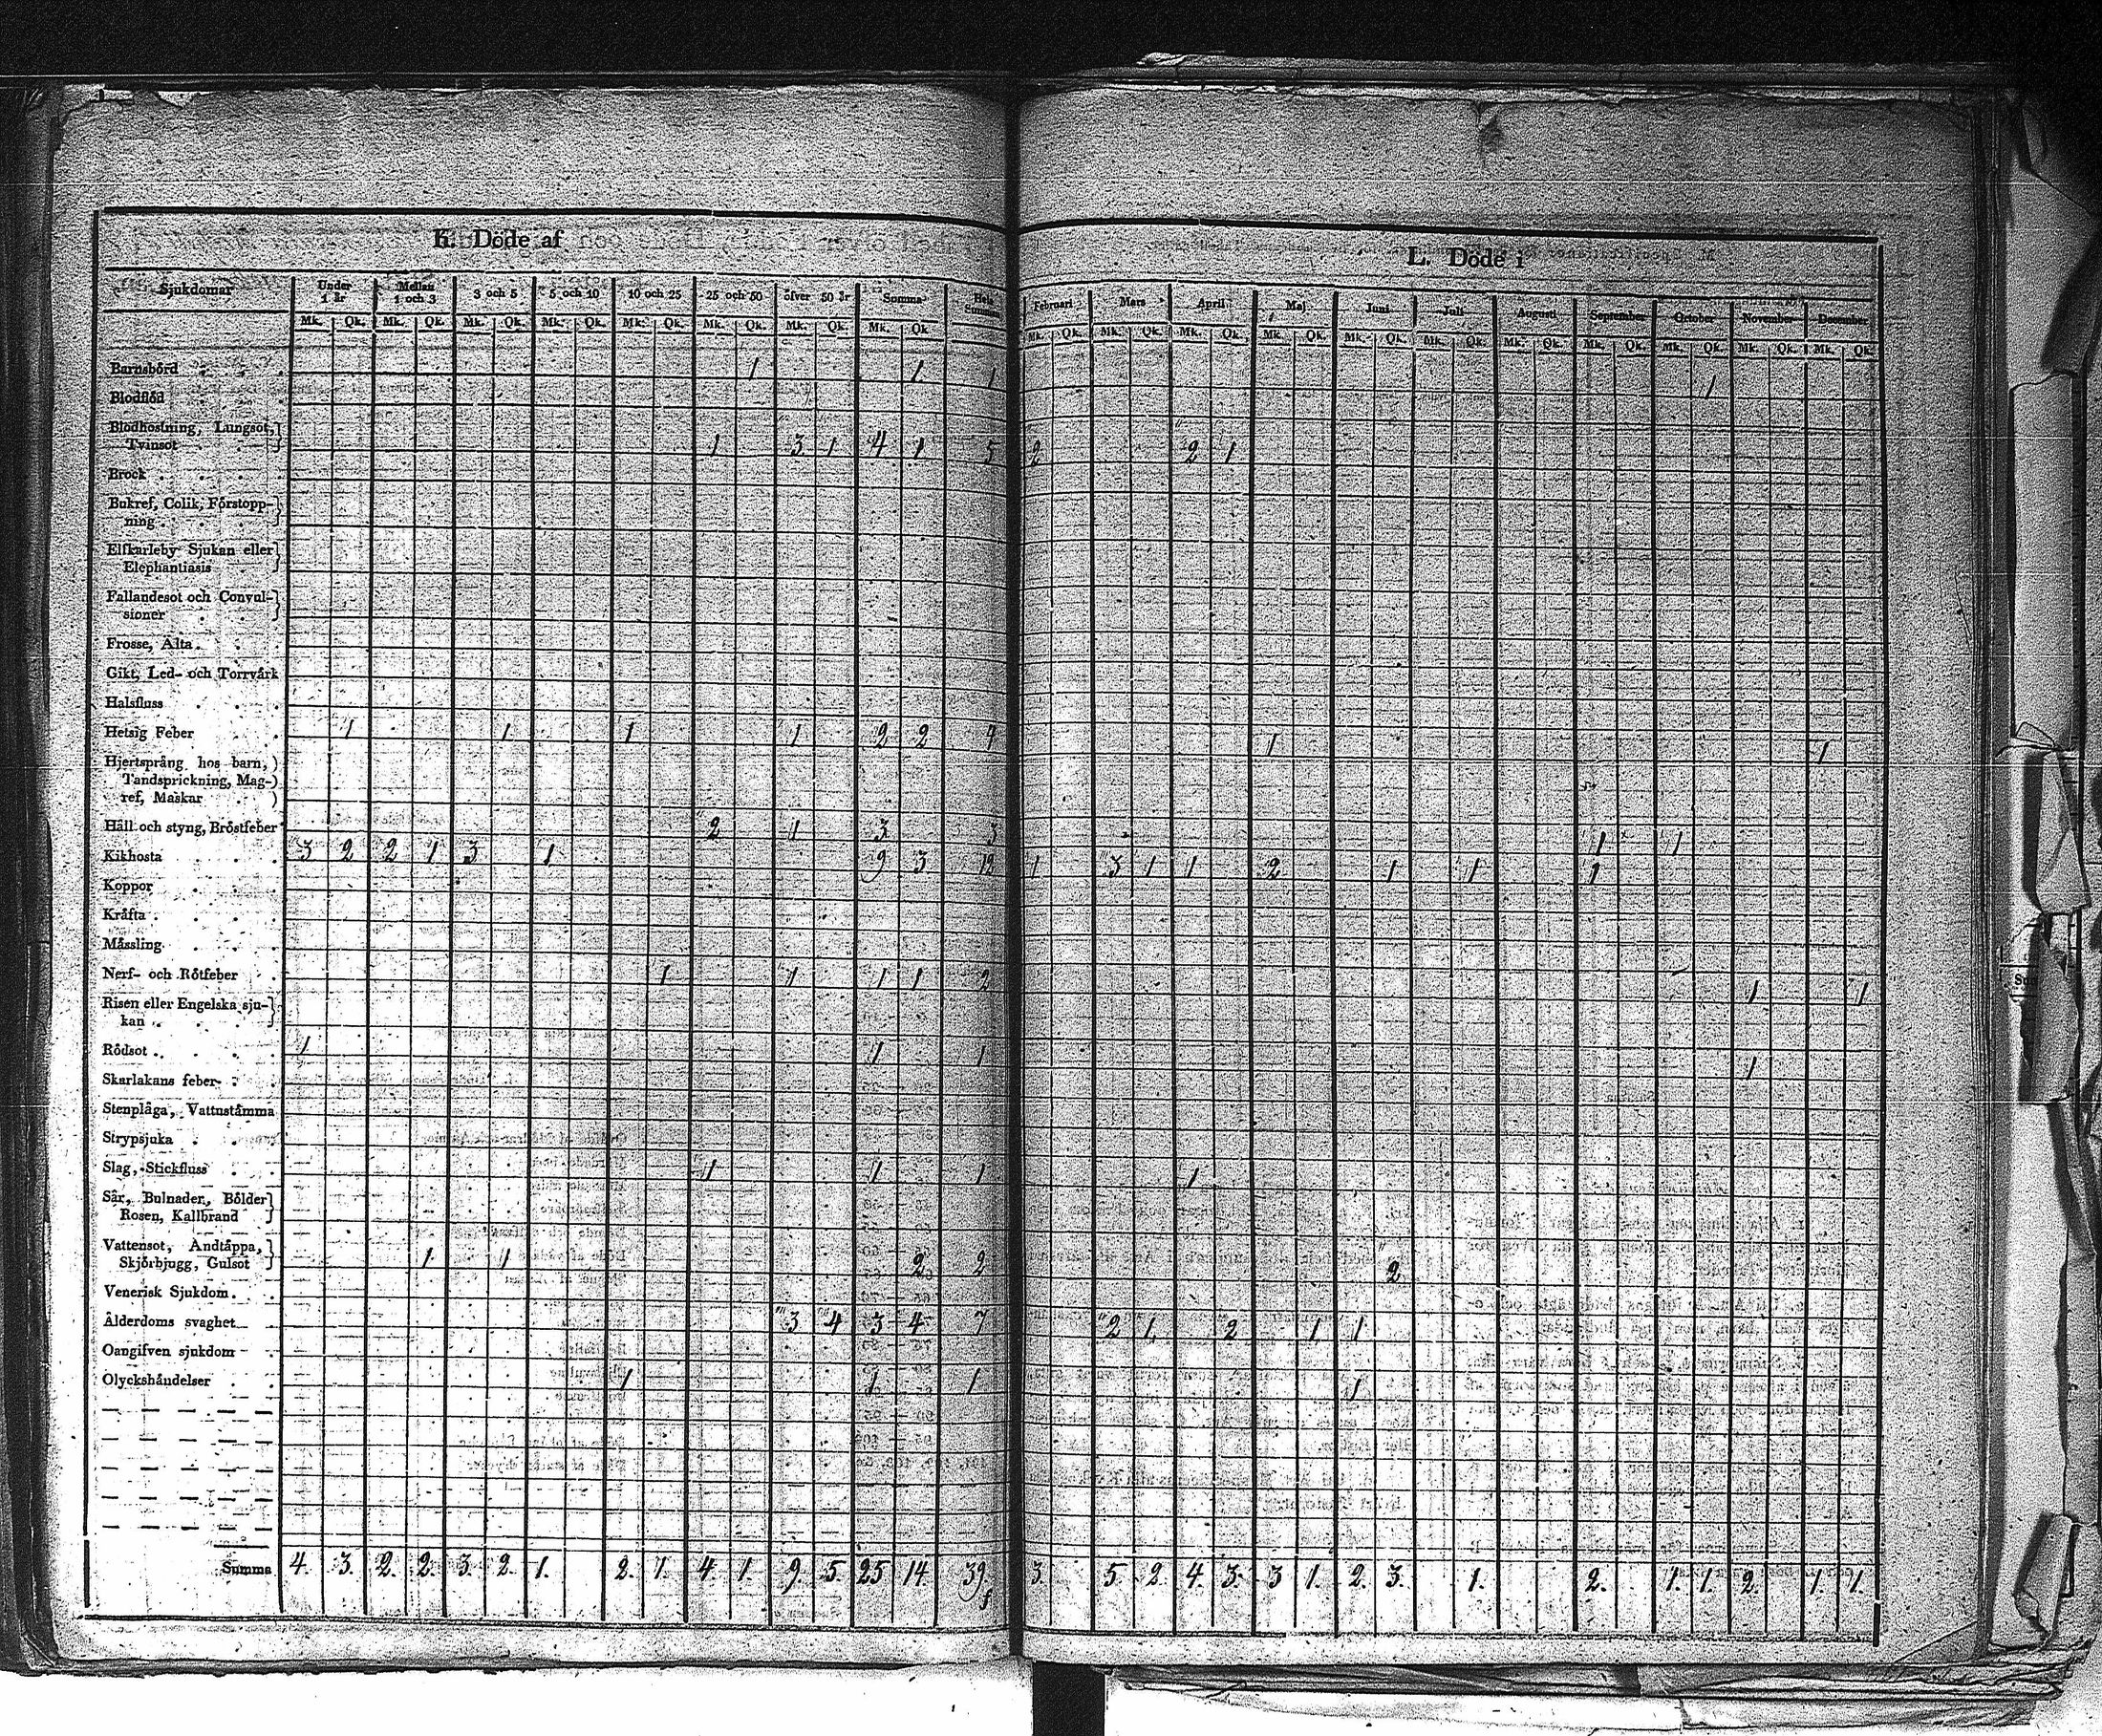 K. Döde af
Sjukdomar Under 1 år Mellan 1 och 3 3 och 5 5 och 10 10 och 25 25 och 50 öfver 50 år Summa Hela Summan
Mk. Qk. Mk. Qk. Mk. Qk. Mk. Qk. Mk. Qk. Mk. Qk. Mk. Qk. Mk. Qk
Barnsbörd 1 1 1
Blodflöd
Blodhostning, Lungsot,
Tvinsot 1 3 1 4 1 5
Brock
Bukref, Colik, Förstopp-
ning
Elfkarleby Sjukan eller
Elephantiasis
Fallandesot och Convul-
sioner
Frosse, Älta
Gikt, Led- och Torrvärk
Halsfluss
Hetsig Feber 1 1 1 1 2 2 4
Hjertsprång hos barn,
Tandsprickning, Mag-
ref, Maskar
Håll och styng, Bröstfeber 2 1 3 3
Kikhosta 3 2 2 1 3 1 9 3 12
Koppor
Kräfta
Mässling
Nerf- och Rötfeber 1 1 1 1 2
Risen eller Engelska sju-
kan
Rödsot 1 1 1
Skarlakans feber
Stenplåga, Vattnstämma
Strypsjuka
Slag, Stickfluss 1 1 1
Sår, Bulnader, Bölder
Rosen, Kallbrand
Vattensot, Andtäppa,
Skjörbjugg, Gulsot 1 1 2 2
Venerisk Sjukdom
Ålderdoms svaghet 3 4 3 4 7
Oangifven sjukdom
Olyckshändelser 1 1 1
Summa 4. 3. 2. 2. 3. 2. 1. 2. 1. 4. 1. 9. 5. 25 14. 39
L. Döde i
Februari Mars April Maj Juni Juli Augusti September October November December
Mk. Qk. Mk. Qk. Mk. Qk. Mk. Qk. Mk. Qk. Mk. Qk. Mk. Qk. Mk. Qk. Mk. Qk. Mk. Qk. Mk. Qk.
1
2 2 1
1 1
1 1
1 3 1 1 2 1 1 1
1 1
1
1
2
2 1 2 1 1
1
3. 5. 2. 4. 3. 3 1. 2. 3. 1. 2. 1. 1. 2. 1. 1.